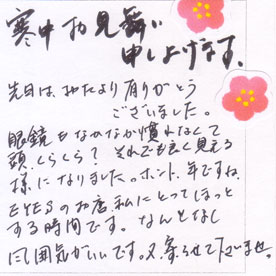 寒中お見舞い
申し上げます。
先日は、おたより有りがとう
ございました。
眼鏡もなかなか慣れなくて
頭、くらくら? それでも良く見える
様になりました。ホント、年ですね。
EYESのお店、私にとってほっと
する時間です。なんとなし
雰囲気がいいです。又、寄らせて下いませ。